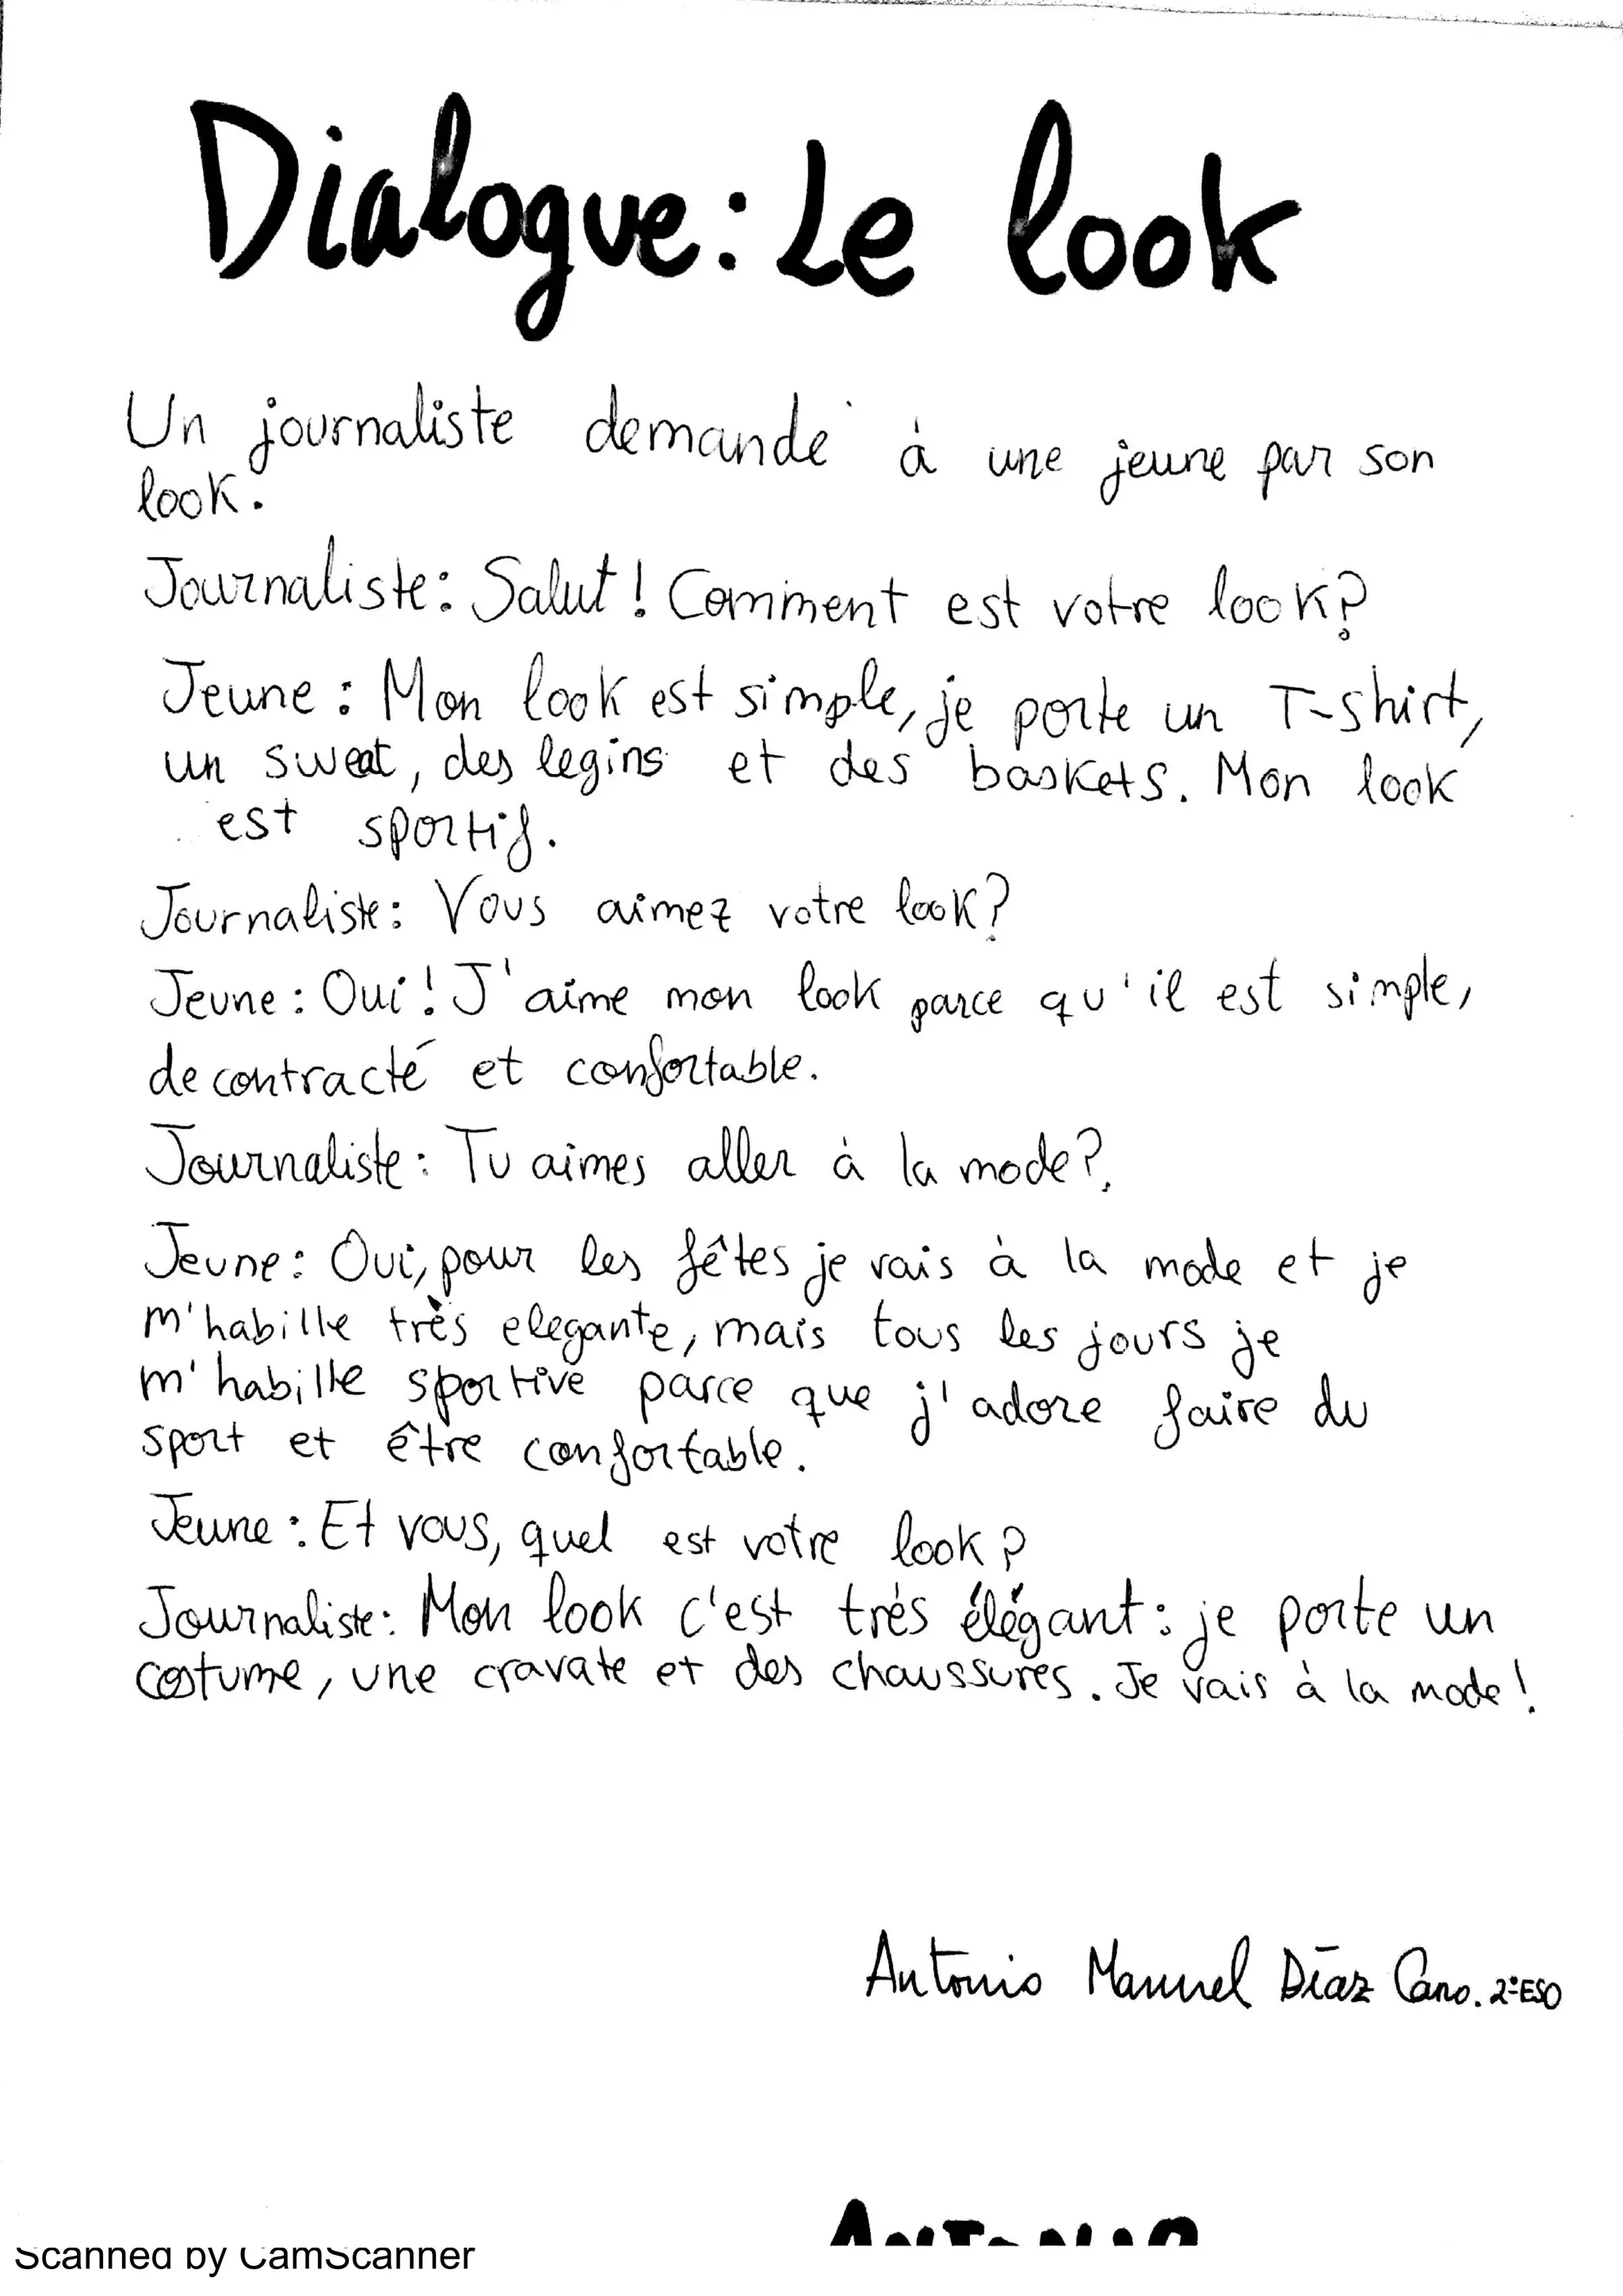 Dialogue: Le look
Un journaliste demande à une jeune par son
look.
Journaliste: Salut! Comment est votre look?
Jeune: Mon look est simple, je porte un T-shirt,
un sweat, des legins et des baskets. Mon look
est sportif.
Journaliste: Vous aimez votre look?
Jeune: Oui! J'aime mon look parce qu'il est simple,
decontracté et confortable.
Journaliste: Tu aimes aller à la mode?
Jeune: Oui, pour les fêtes je vais à la mode et je
m'habille très elegante, mais tous les jours je
m'habille sportive parce que j'adore faire du
sport et être confortable.
Jeune: Et vous, quel est votre look?
Journaliste: Mon look c'est trés élégant: je porte un
costume, une cravate et des chaussures. Je vais à la mode!
Antonio Manuel Díaz Cano. 2ºESO
Antonio
Scanned by CamScanner